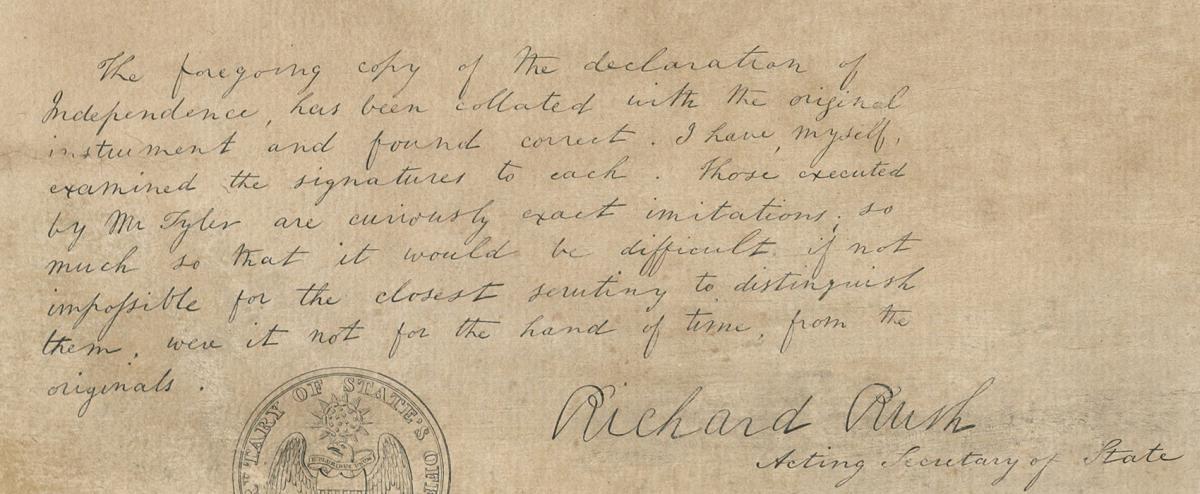 The foregoing copy of the declaration of
Independence, has been collated with the original
instrument and found correct. I have, myself,
examined the signatures to each. Those executed
by Mr Tyler are curiously exact imitations; so
much so that it would be difficult, if not
impoſsible for the closest scrutiny to distinguish
them, were it not for the hand of time, from the
originals.
Richard Rush
Acting Secretary of State
TARY OF STATE'S OF
E PLURIBUS UNUM